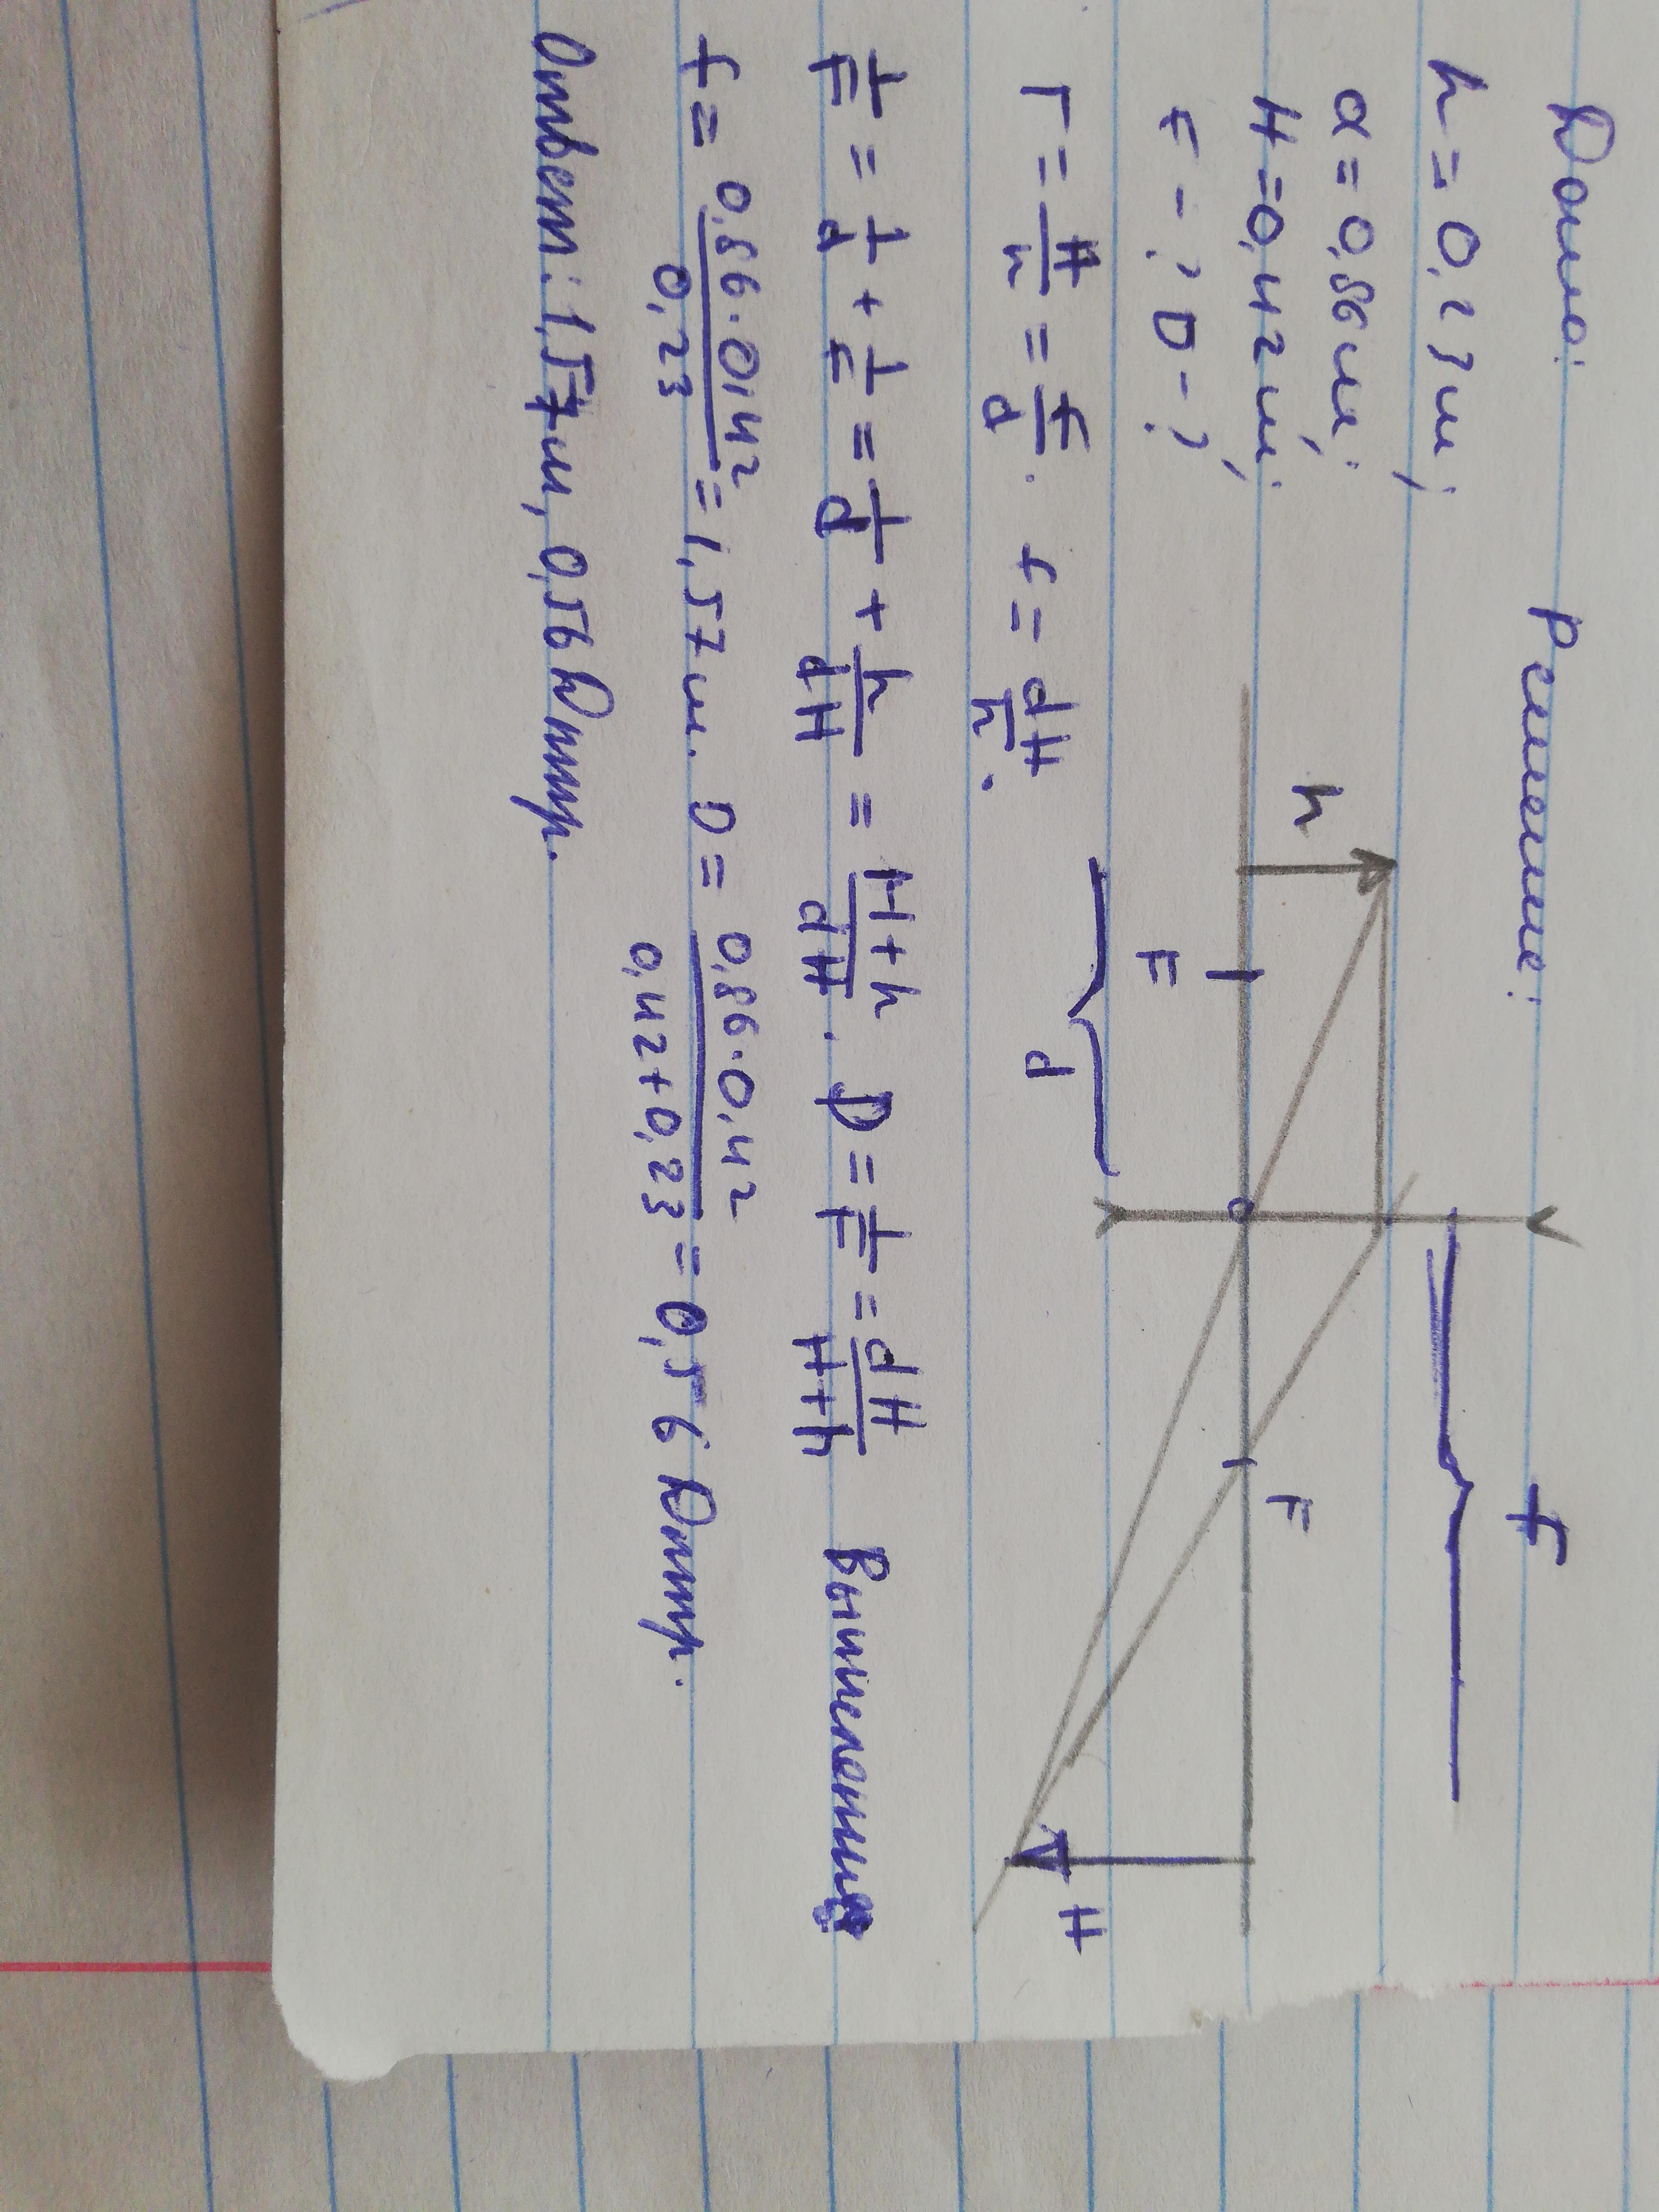 Дано: Решение:
h = 0,23 м;
α = 0,86 м;
H = 0,42 м;
F - ? D - ?
f
h
F
F
d
H
Г = H/h = f/d. f = dH/h.
1/F = 1/d + 1/f = 1/d + h/dH = H+h/dH. D = 1/F = dH/h+H Вычисления
f = 0,86·0,42/0,23 = 1,57 м. D = 0,86·0,42/0,42+0,23 = 0,56 Дптр.
Ответ: 1,57 м, 0,56 Дптр.